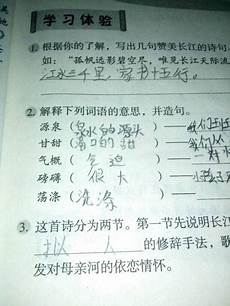 学习体验
1. 根据你的了解，写出几句赞美长江的诗句
如："孤帆远影碧空尽，唯见长江天际流
江水三千里，家书十五行。
2. 解释下列词语的意思，并造句。
源泉（泉水的源头）——我们
甘甜（ 口的甜）——
气概（气迫）——
磅礴（很大）——
荡涤（洗涤）
3. 这首诗分为两节。第一节先说明长江
拟人的修辞手法，歌
发对母亲河的依恋情怀。